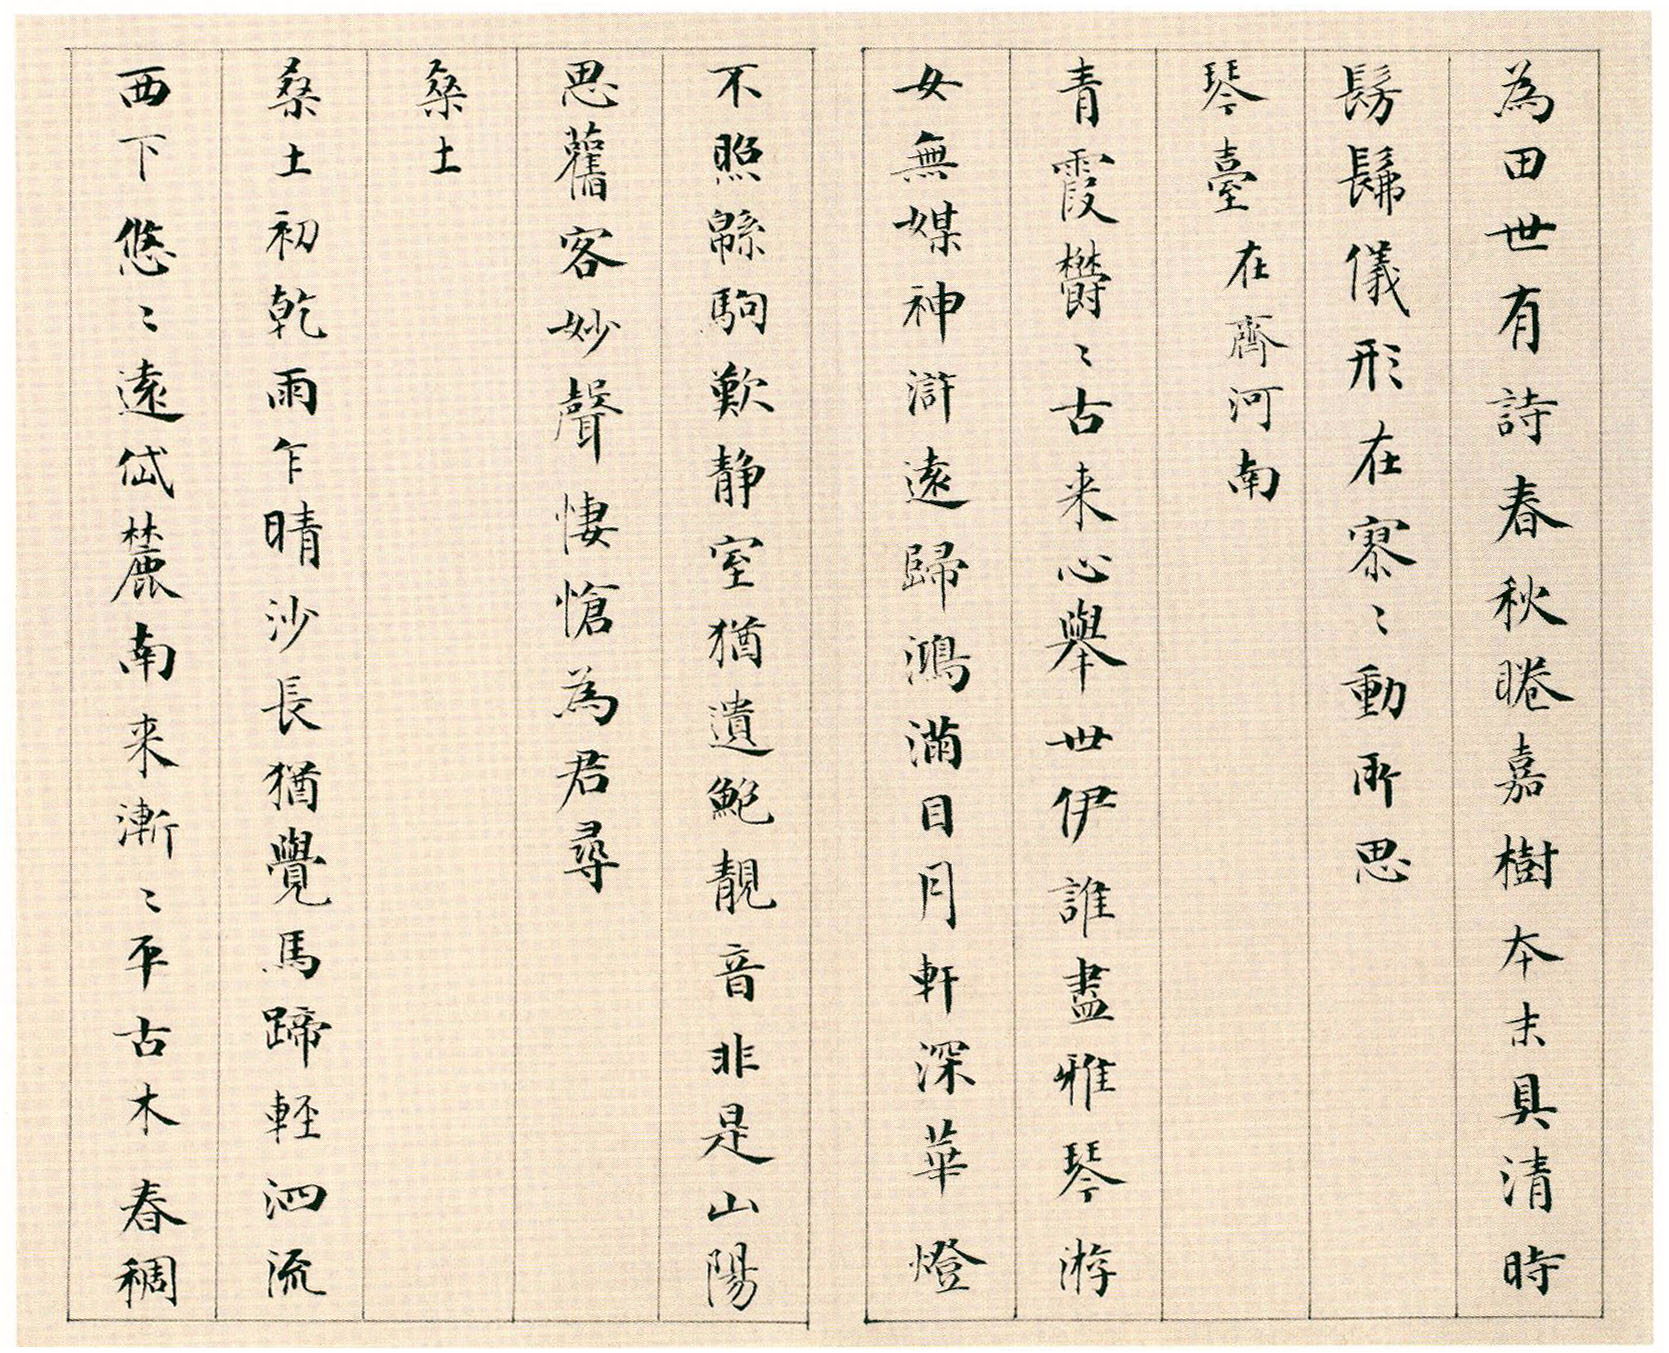 為田世有詩春秋睠嘉樹本末具清時
髣髴儀形在寥〻動所思
琴臺 在齊河南
青霞欝〻古来心舉世伊誰盡雅琴游
女無媒神滸遠歸鴻滿目月軒深華燈
不照緜駒歎静室猶遺鮑靚音非是山陽
思舊客妙聲悽愴為君尋
桑土
桑土初乾雨乍晴沙長猶覺馬蹄輕泗流
西下悠〻遠岱麓南来漸〻平古木春稠